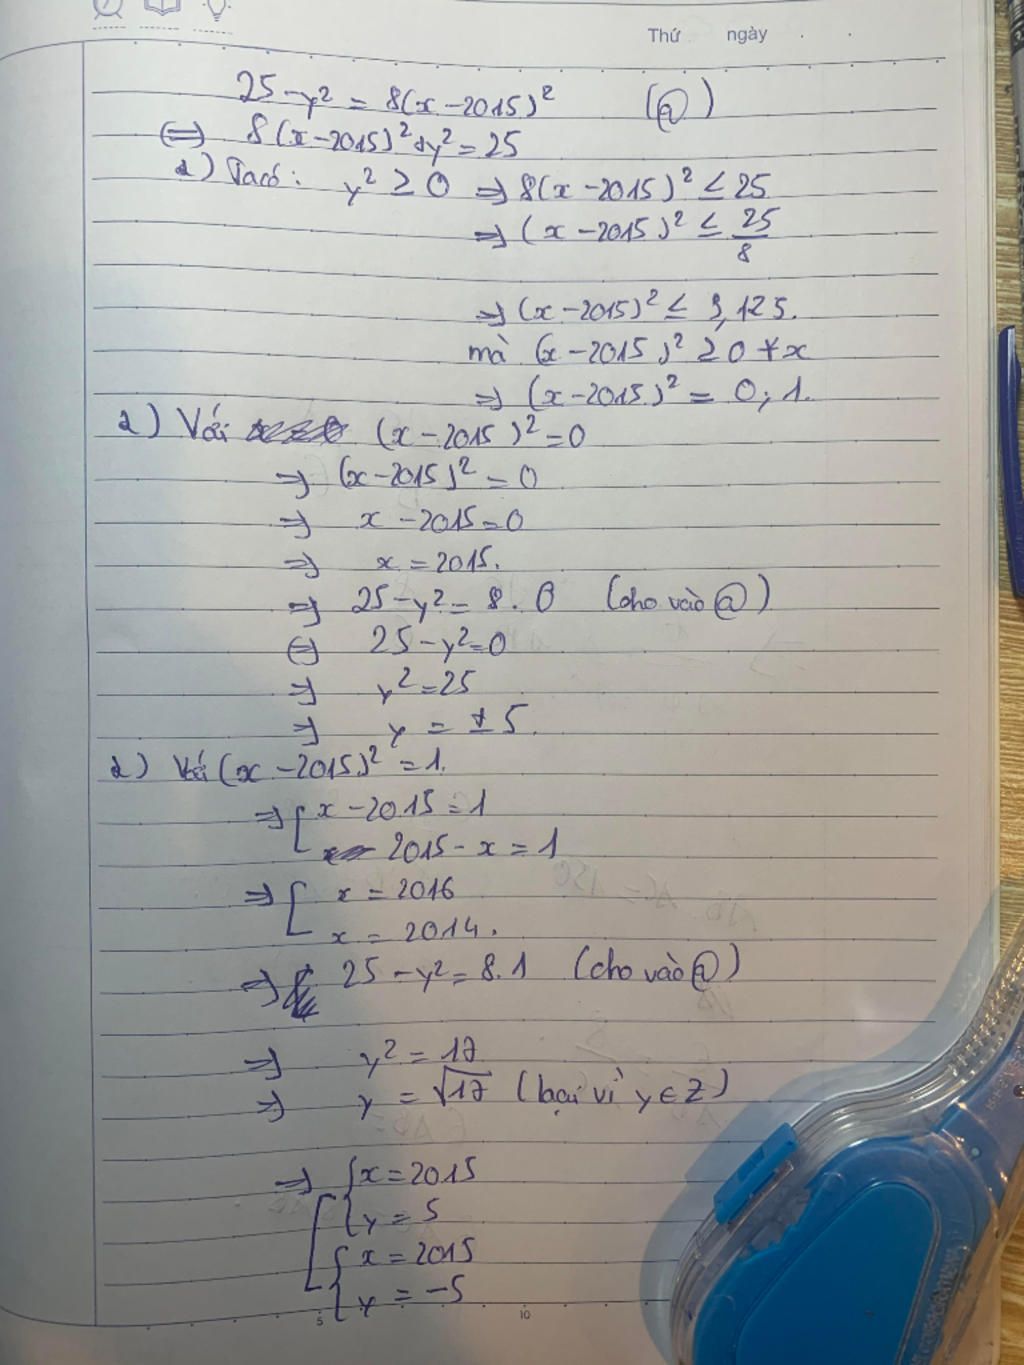 Thứ ngày . .
25 - y² = 8(x - 2015)² (@)
(=) 8(x - 2015)² + y² = 25
1) Ta có: y² ≥ 0 => 8(x - 2015)² ≤ 25
=> (x - 2015)² ≤ 25/8
=> (x - 2015)² ≤ 3,125.
mà (x - 2015)² ≥ 0 ∀x
=> (x - 2015)² = 0; 1.
2) Với (x - 2015)² = 0
=> (x - 2015)² = 0
=> x - 2015 = 0
=> x = 2015.
=> 25 - y² = 8 . 0 (cho vào @)
(=) 25 - y² = 0
=> y² = 25
=> y = ± 5.
2) Với (x - 2015)² = 1.
=> [ x - 2015 = 1
2015 - x = 1
=> [ x = 2016
x = 2014.
=> 25 - y² = 8.1 (cho vào @)
=> y² = 17
=> y = √17 (loại vì y ∈ Z)
=> [ { x = 2015
y = 5
{ x = 2015
y = -5
5 10